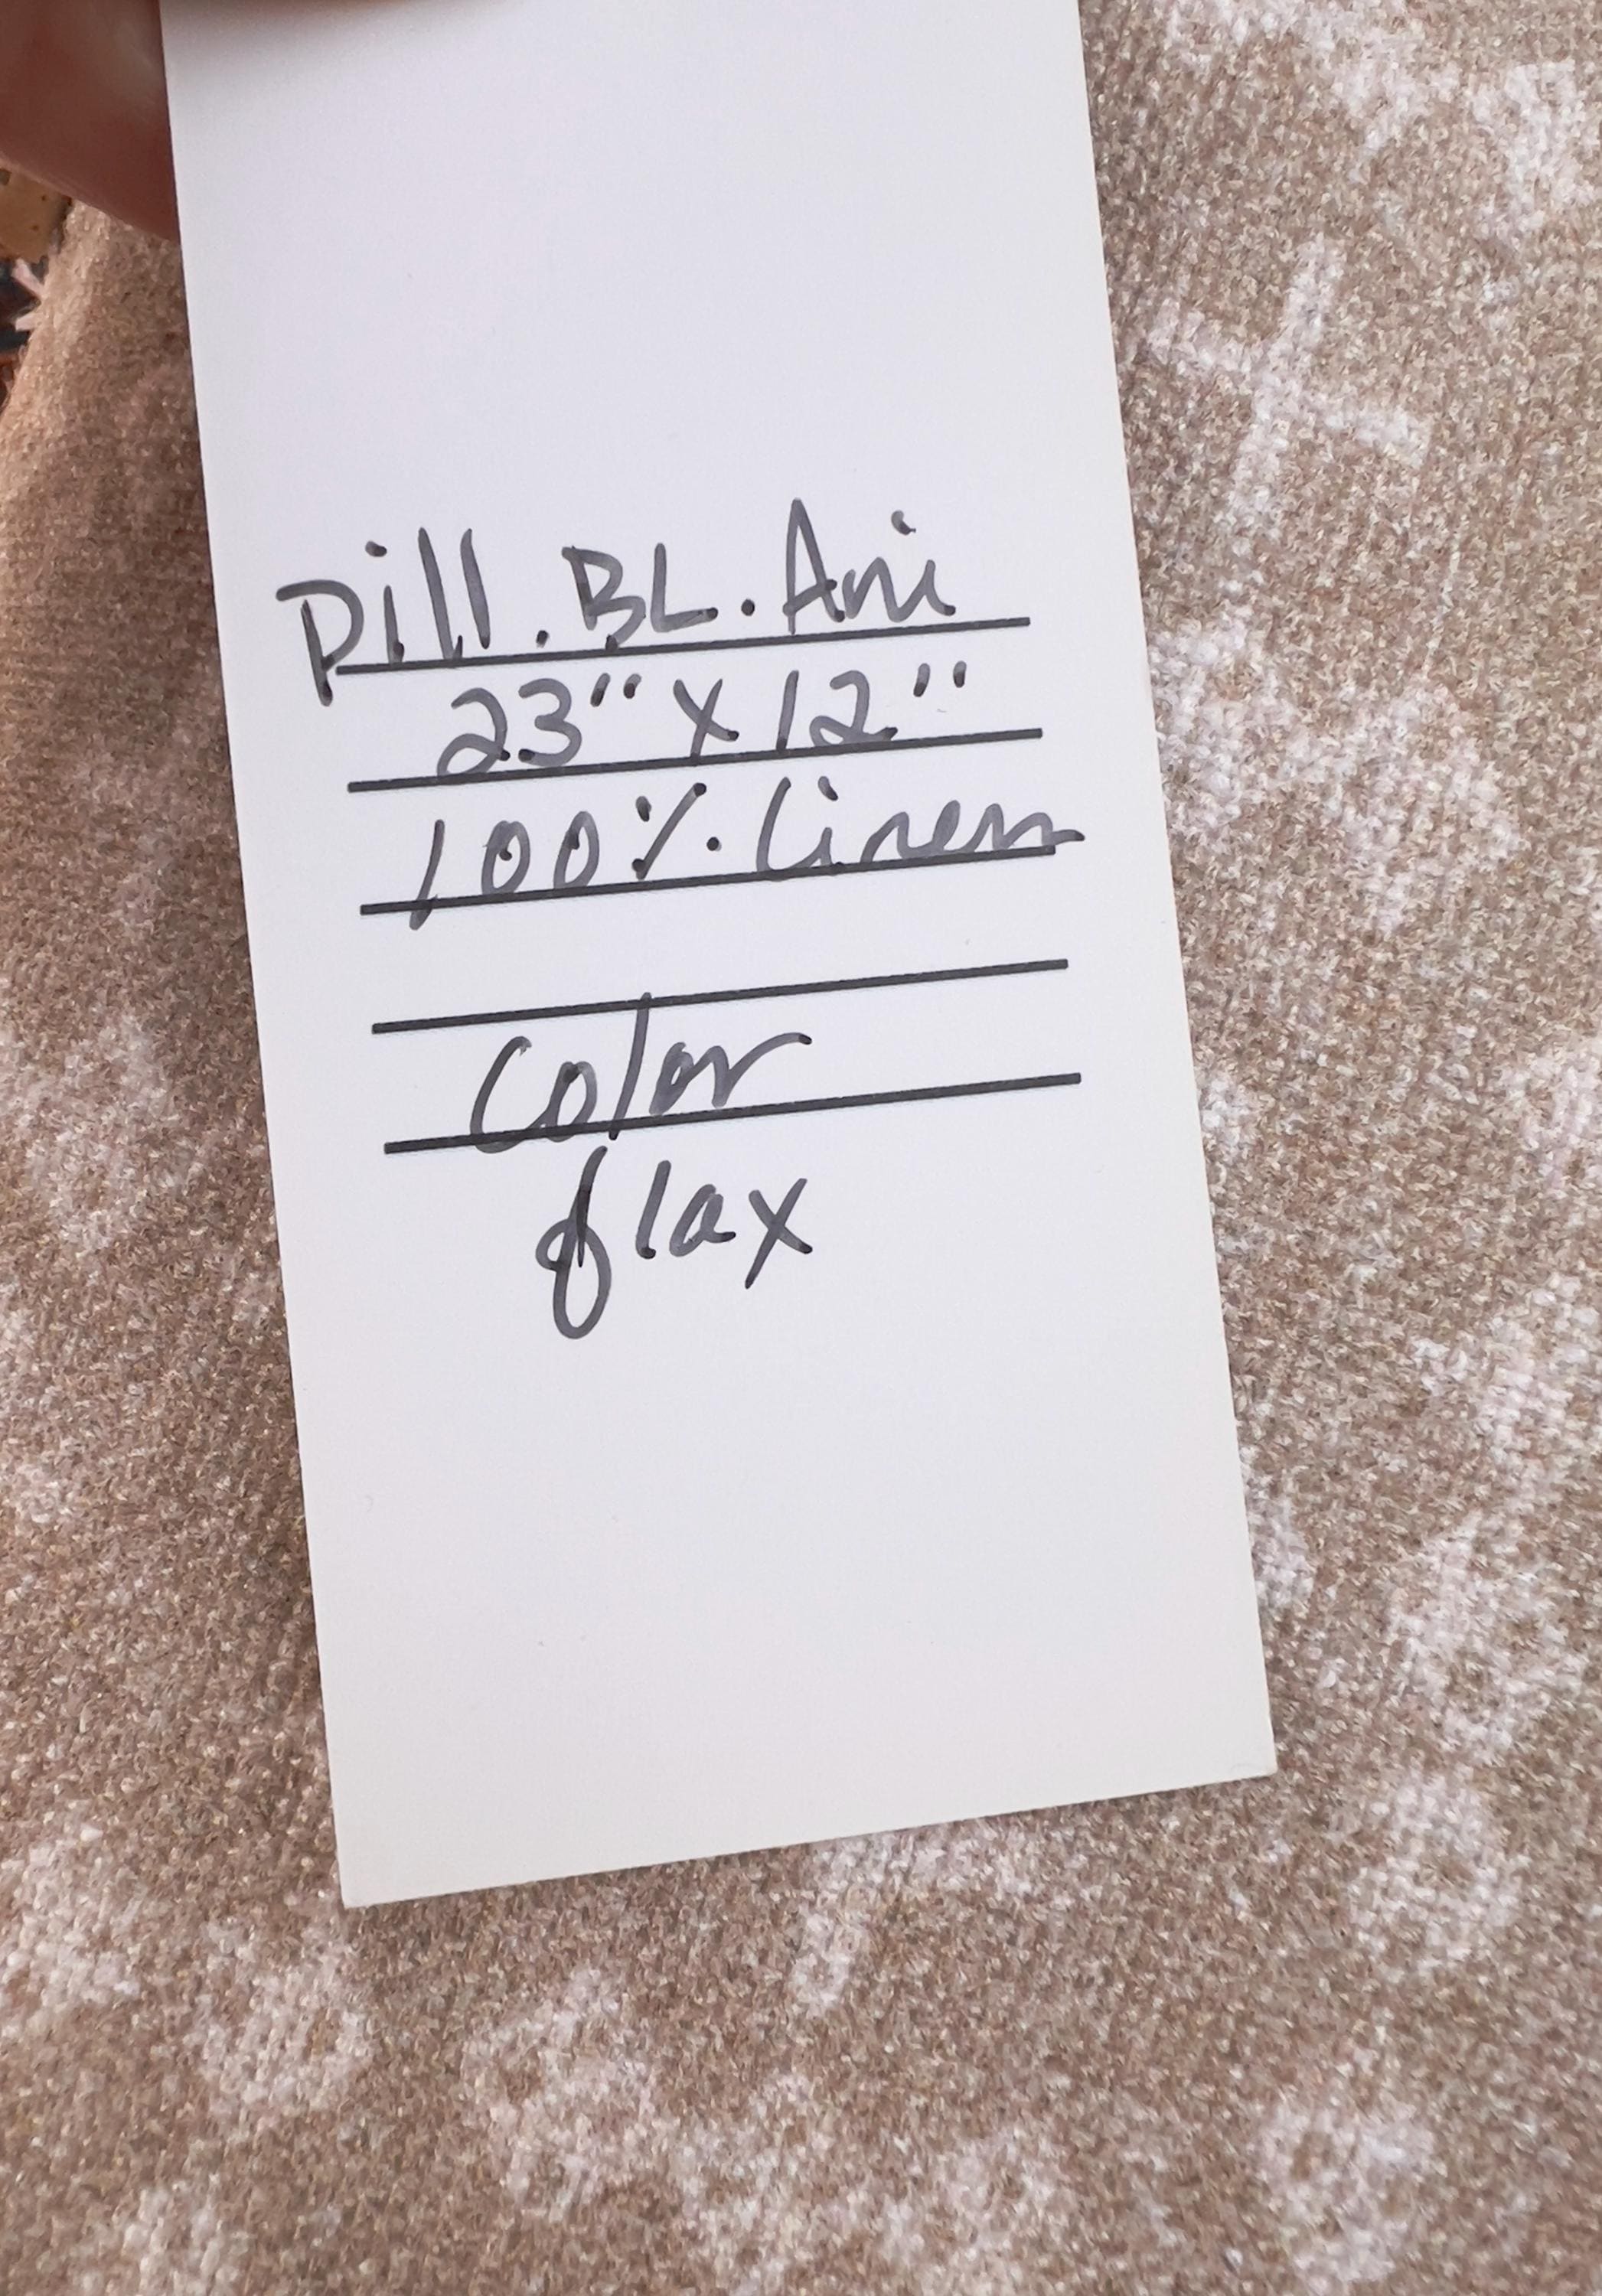 Pill. BL. Ani
23" x 12"
100% Linen
Color
flax